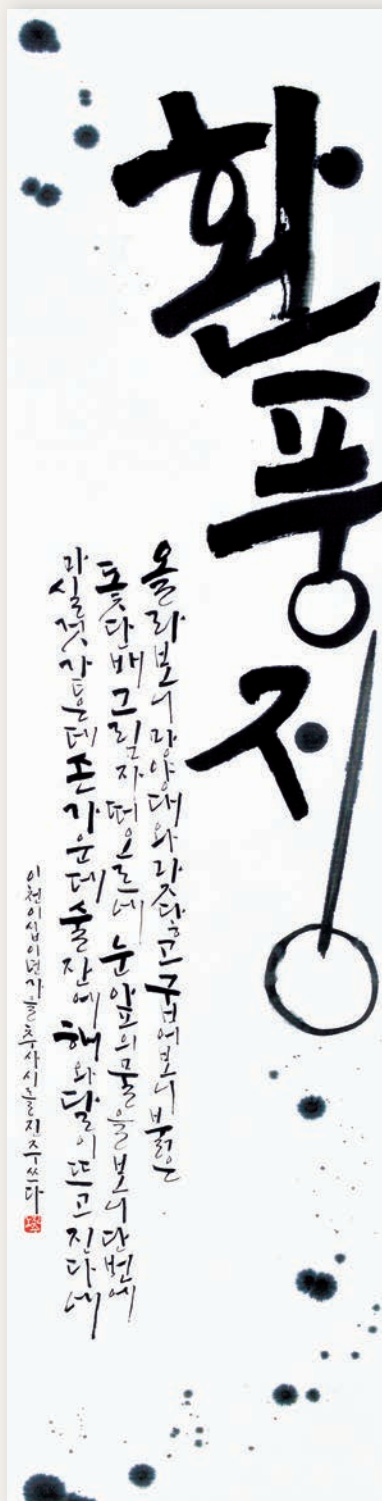 환풍정
올라보니 망양대와 맞닿고 굽어보니 붉은
돛단배 그림자 떠오르네 눈앞의 물을 보니 단번에
마실 것 같은데 손 가운데 술잔에 해와 달이 뜨고 진다네
이천이십이년 가을 추사 시를 진주 쓰다